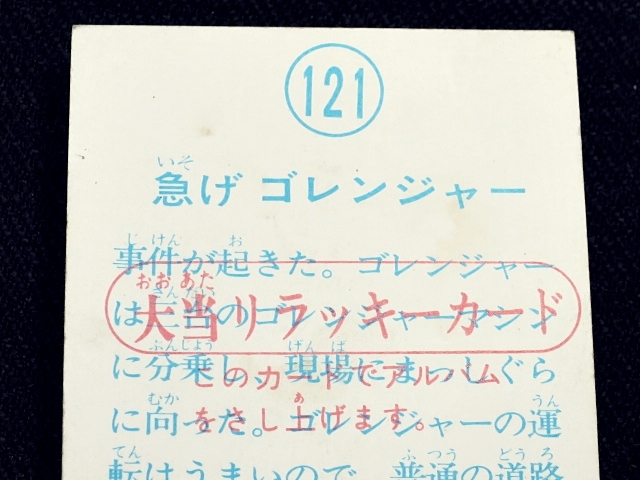 121
急げ ゴレンジャー
事件が起きた。ゴレンジャー
は三台のゴレンジャーマシン
に分乗し、現場にまっしぐら
に向った。ゴレンジャーの運
転はうまいので、普通の道路
大当りラッキーカード
このカードでアルバム
をさし上げます。